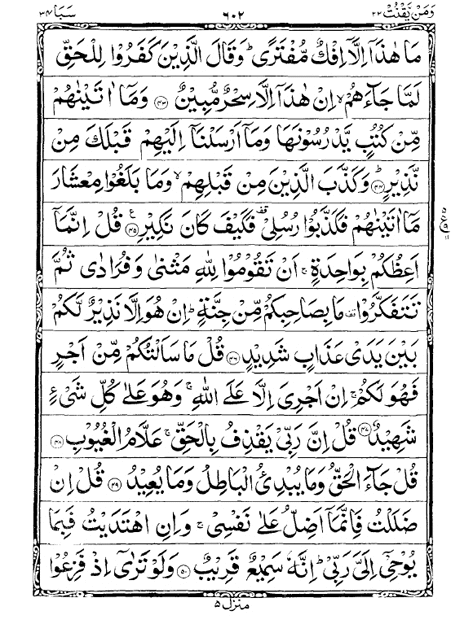 وَمَنْ يَّقْنُتْ ٢٢ ٦٠٢ سَبَا ٣٤
مَا هٰذَاۤ اِلَّاۤ اِفْكٌ مُّفْتَرًى ؕ وَقَالَ الَّذِيْنَ كَفَرُوْا لِلْحَقِّ
لَمَّا جَآءَهُمْ ۙ اِنْ هٰذَاۤ اِلَّا سِحْرٌ مُّبِيْنٌ ﴿٤٣﴾ وَمَاۤ اٰتَيْنٰهُمْ
مِّنْ كُتُبٍ يَّدْرُسُوْنَهَا وَمَاۤ اَرْسَلْنَاۤ اِلَيْهِمْ قَبْلَكَ مِنْ
نَّذِيْرٍ ﴿٤٤﴾ؕ وَكَذَّبَ الَّذِيْنَ مِنْ قَبْلِهِمْ ۙ وَمَا بَلَغُوْا مِعْشَارَ
مَاۤ اٰتَيْنٰهُمْ فَكَذَّبُوْا رُسُلِيْ ۟ فَكَيْفَ كَانَ نَكِيْرِ ﴿٤٥﴾ قُلْ اِنَّمَاۤ
اَعِظُكُمْ بِوَاحِدَةٍ ۚ اَنْ تَقُوْمُوْا لِلّٰهِ مَثْنٰى وَفُرَادٰى ثُمَّ
تَتَفَكَّرُوْا ۟ مَا بِصَاحِبِكُمْ مِّنْ جِنَّةٍ ؕ اِنْ هُوَ اِلَّا نَذِيْرٌ لَّكُمْ
بَيْنَ يَدَيْ عَذَابٍ شَدِيْدٍ ﴿٤٦﴾ قُلْ مَا سَاَلْتُكُمْ مِّنْ اَجْرٍ
فَهُوَ لَكُمْ ؕ اِنْ اَجْرِيَ اِلَّا عَلَى اللّٰهِ ۚ وَهُوَ عَلٰى كُلِّ شَيْءٍ
شَهِيْدٌ ﴿٤٧﴾ قُلْ اِنَّ رَبِّيْ يَقْذِفُ بِالْحَقِّ ۚ عَلَّامُ الْغُيُوْبِ ﴿٤٨﴾
قُلْ جَآءَ الْحَقُّ وَمَا يُبْدِئُ الْبَاطِلُ وَمَا يُعِيْدُ ﴿٤٩﴾ قُلْ اِنْ
ضَلَلْتُ فَاِنَّمَاۤ اَضِلُّ عَلٰى نَفْسِيْ ۚ وَاِنِ اهْتَدَيْتُ فَبِمَا
يُوْحِيْۤ اِلَيَّ رَبِّيْ ؕ اِنَّهٗ سَمِيْعٌ قَرِيْبٌ ﴿٥٠﴾ وَلَوْ تَرٰۤى اِذْ فَزِعُوْا
منزل ٥